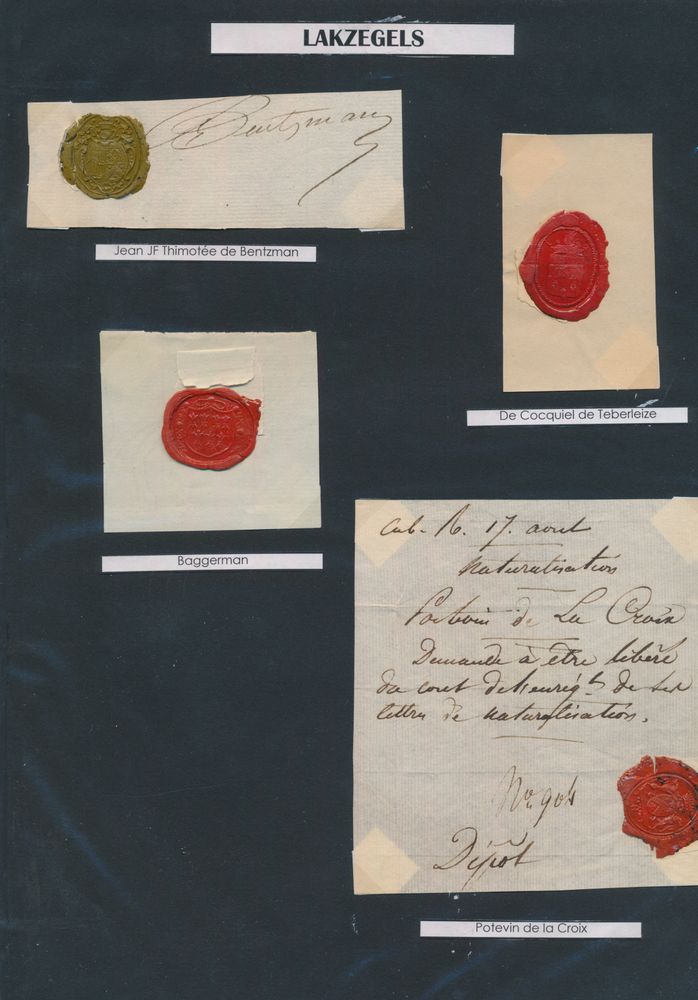 LAKZEGELS
Bentzman
Jean JF Thimotée de Bentzman
De Cocquiel de Teberleize
Baggerman
Cab. R. 17. aout
Naturalisation
Potvin de La Croix
Demande à être libéré
du cout de l'enrég.t de ses
lettres de naturalisation.
Dépôt
Potevin de la Croix